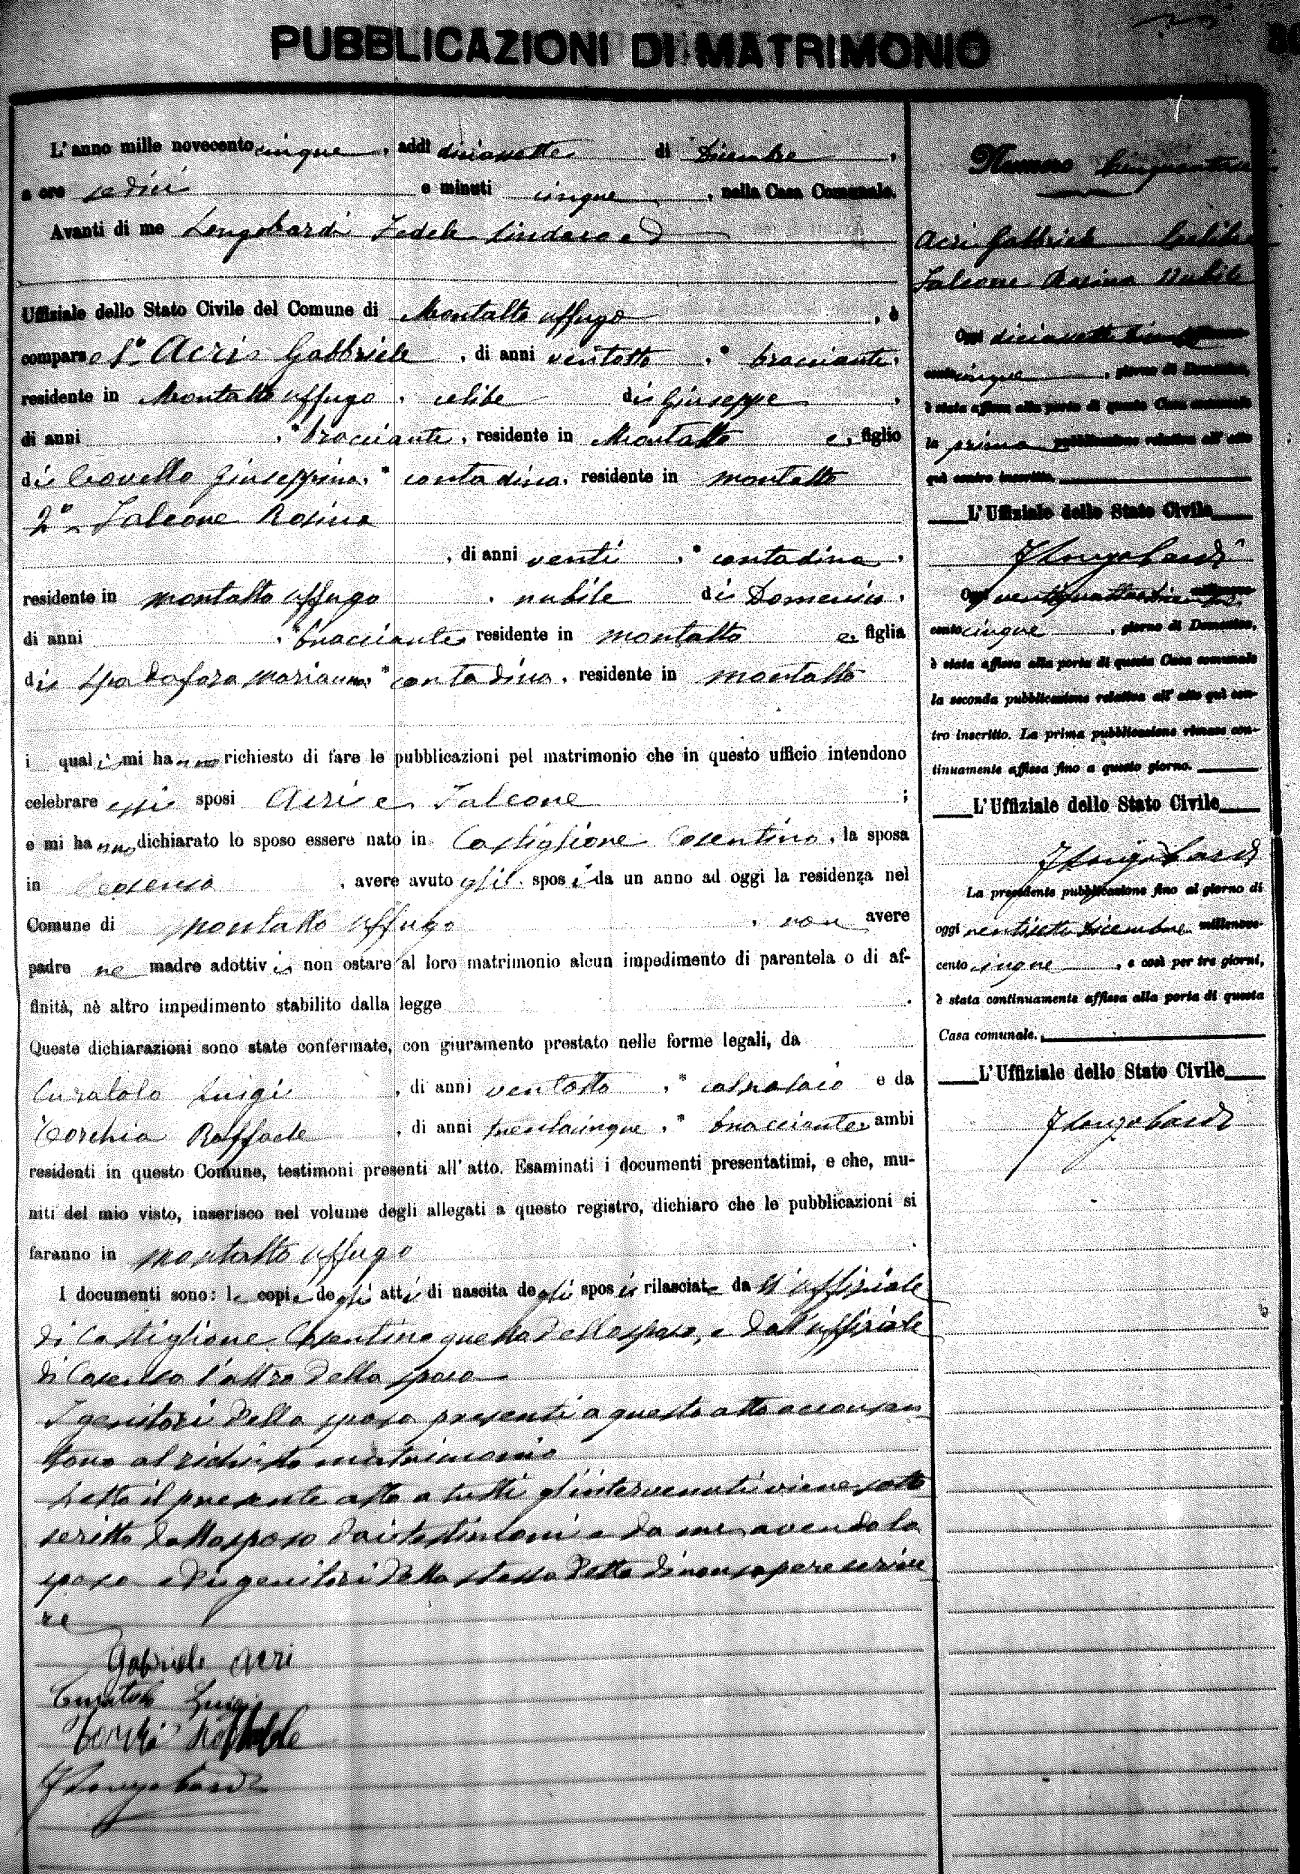 PUBBLICAZIONI DI MATRIMONIO
L'anno mille novecento cinque, addì diciassette di Dicembre,
a ore sedici e minuti cinque, nella Casa Comunale.
Avanti di me Longobardi Fedele Sindaco ed
Uffiziale dello Stato Civile del Comune di Montalto Uffugo, è
compars 1º Acri Gabbriele, di anni ventotto, bracciante,
residente in Montalto Uffugo, celibe di Giuseppe,
di anni, bracciante, residente in Montalto e, figlio
di Covello Giuseppina, contadina, residente in Montalto
2º Falcone Rosina
, di anni venti, contadina,
residente in Montalto Uffugo, nubile di Domenico,
di anni, bracciante residente in Montalto e, figlia
di Spadafora Marianna, contadina, residente in Montalto
i quali mi hanno richiesto di fare le pubblicazioni pel matrimonio che in questo ufficio intendono
celebrare essi sposi Acri e Falcone;
e mi hanno dichiarato lo sposo essere nato in Castiglione Cosentino, la sposa
in Cosenza, avere avuto gli sposi da un anno ad oggi la residenza nel
Comune di Montalto Uffugo, non avere
padre ne madre adottivi non ostare al loro matrimonio alcun impedimento di parentela o di af-
finità, nè altro impedimento stabilito dalla legge.
Queste dichiarazioni sono state confermate, con giuramento prestato nelle forme legali, da
Curatolo Luigi, di anni ventotto, e da
Torchia Raffaele, di anni trentacinque, bracciante, ambi
residenti in questo Comune, testimoni presenti all'atto. Esaminati i documenti presentatimi, e che, mu-
niti del mio visto, inserisco nel volume degli allegati a questo registro, dichiaro che le pubblicazioni si
faranno in Montalto Uffugo.
I documenti sono: le copie degli atti di nascita degli sposi rilasciate da ll'uffiziale
di Castiglione Cosentino quella dello sposo, e dall'uffiziale
di Cosenza l'altra della sposa
I genitori della sposa presenti a questo atto acconsen
tono al richiesto matrimonio
Letto il presente atto a tutti gl'intervenuti viene sotto
scritto dallo sposo dai testimoni e da me avendo la
sposa ed i genitori della stessa detto di non sapere scrive
re
Gabriele Acri
Curatolo Luigi
Raffaele
F Longobardi
Numero Cinquantasei
Acri Gabbriele Celibe
Falcone Rosina Nubile
Oggi diciassette
cento cinque, giorno di Domenica,
è stata affissa alla porta di questa Casa comunale
la prima pubblicazione relativa all'atto
quì contro inscritto.
L'Uffiziale dello Stato Civile
F Longobardi
Oggi ventiquattro Dicembre
cento cinque, giorno di Domenica,
è stata affissa alla porta di questa Casa comunale
la seconda pubblicazione relativa all'atto quì con-
tro inscritto. La prima pubblicazione rimase con-
tinuamente affissa fino a questo giorno.
L'Uffiziale dello Stato Civile
F Longobardi
La precedente pubblicazione fino al giorno di
oggi ventisette Dicembre millenove-
cento cinque, e così per tre giorni,
è stata continuamente affissa alla porta di questa
Casa comunale.
L'Uffiziale dello Stato Civile
F Longobardi